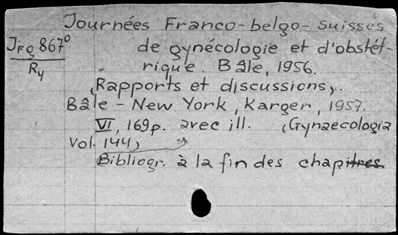 Journées Franco-belgo-suisses
J Fg 867⁰ de gynécologie et d'obstét-
R4 rique Bâle, 1956.
(Rapports et discussions).
Bâle - New York, Karger, 1957.
VI, 169p. avec ill. (Gynaecologia
Vol. 144)
Bibliogr. à la fin des chapitres